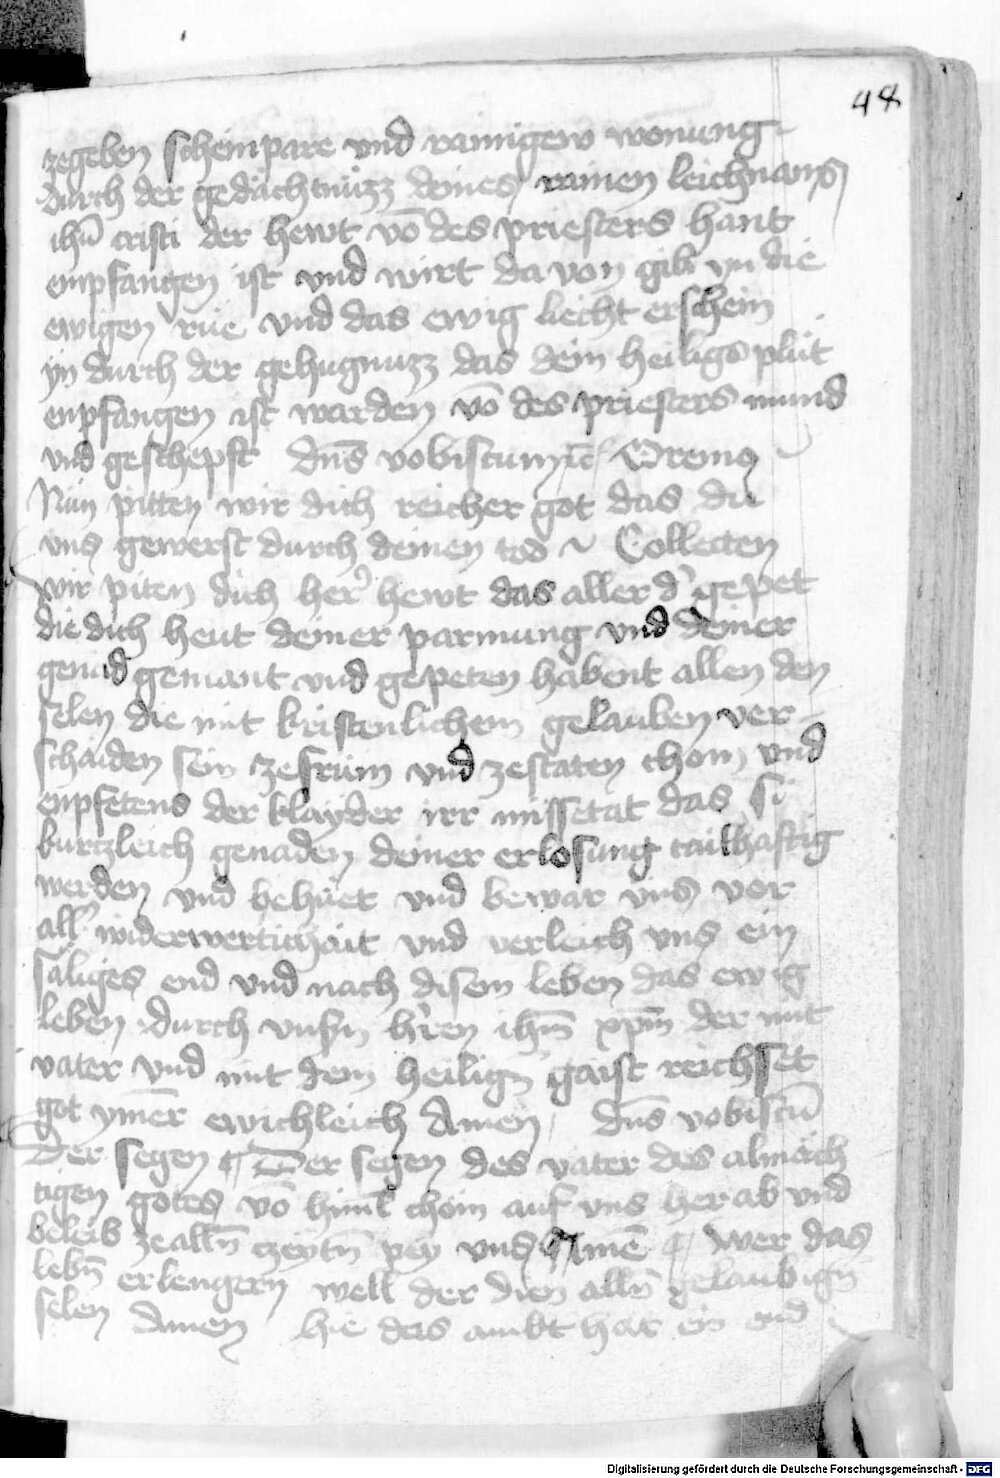 48
zegeben scheinpare vnd rainigew wonung
durch der gedächtnüzz deines rainen leichnams
ihũ cristi der hewt võ des priesters hant
enpfangen ist vnd wirt da von gib yn die
ewigen rüe vnd das ewig liecht erschein
yn durch der gehugnuzz das dein heiligs plüt
enpfangen ist warden võ des priesters mund
vnd geschepft dñs vobiscum Oremꝰ
Nün pitten wir dich reicher got das du
vns gewerst durch deinen tod Collecten
wir piten dich her hewt das aller d' gepet
die dich heut deiner parmung vnd deiner
genad gemant vnd gepeten habent allen den
selen die mit kristenlichem gelauben ver
schaiden sein ze frum vnd ze staten chom vnd
enpfetens der klayder irr missetat das si
kurtzleich genaden deiner erlosung tailhaftig
werden vnd behüet vnd bewar vns vor
all' widerwertichait vnd verleich vns ein
säliges end vnd nach disem leben das ewig
leben durch vnsñ h'ren ihm̃ xpm̃ der mit
vater vnd mit dem heilign̄ gaist reichset
got ymer ewichleich Amen dñs vobiscũ
Der segen ¶ Der segen des vater des almäch
tigen gotes võ himl chöm auf vns her ab vnd
beleib ze alln̄ czeytn̄ pey vns Amē ¶ wer das
lebn̄ erlengern well der dien alln̄ gelaubign̄
selen Amen hie das ambt hat ein end
Digitalisierung gefördert durch die Deutsche Forschungsgemeinschaft - DFG